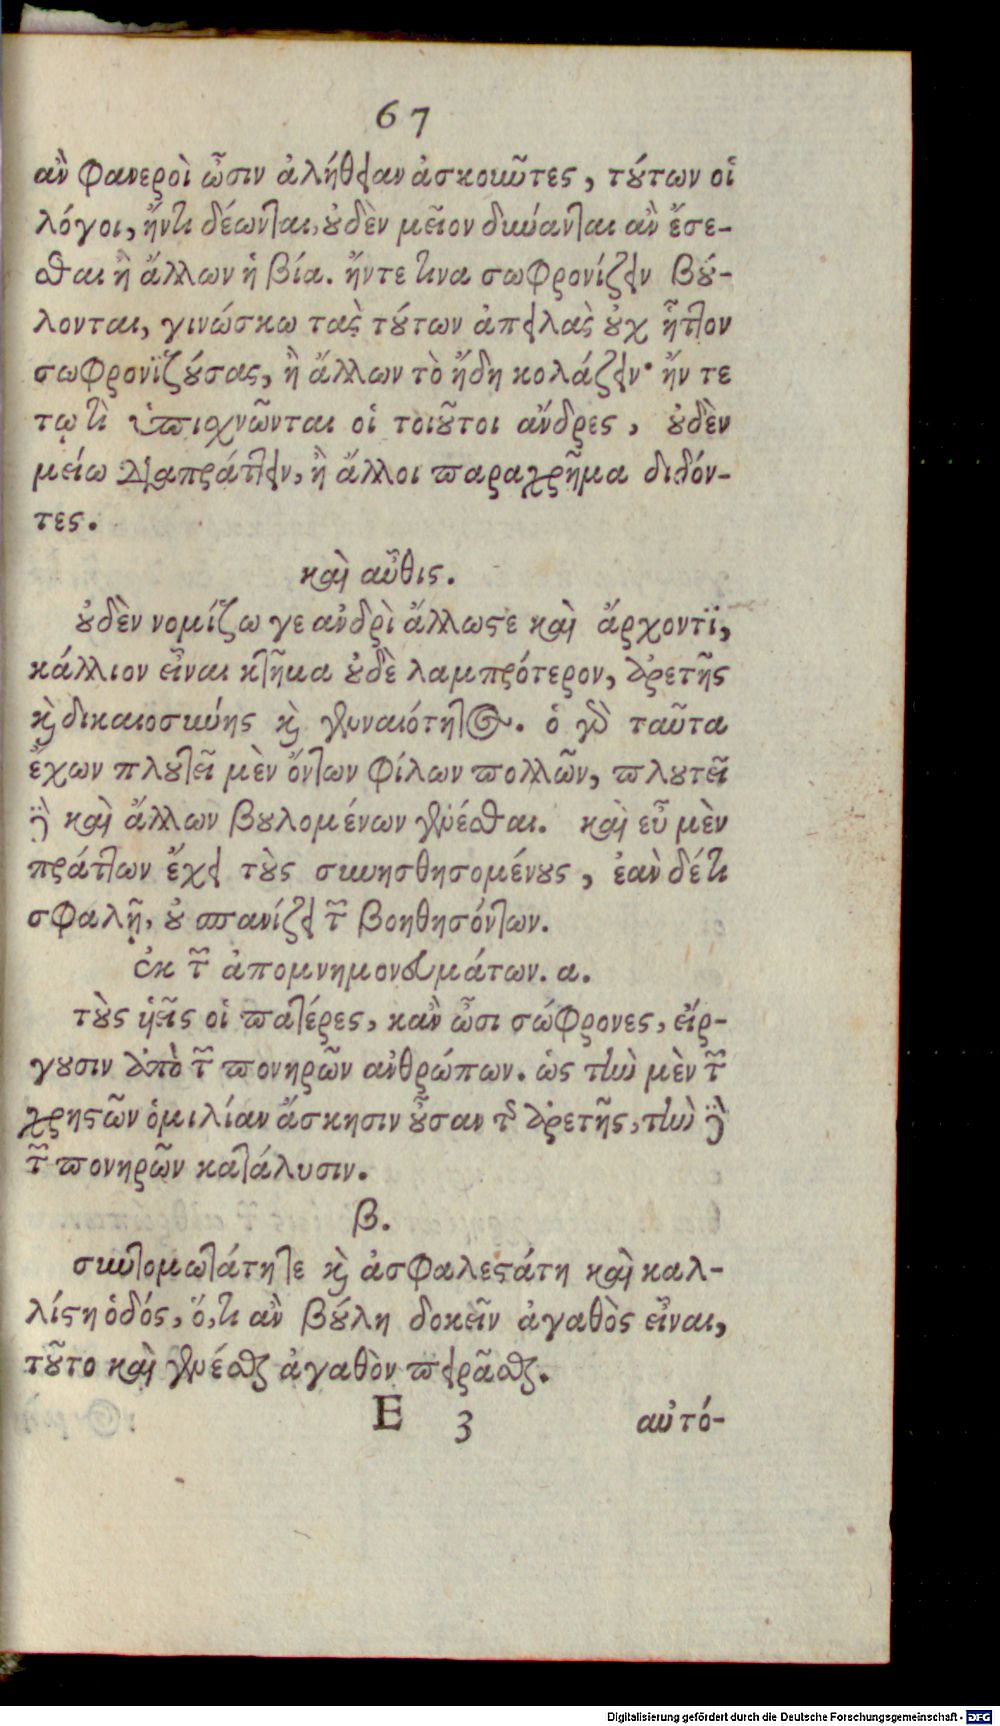 67
ἂν φανεροὶ ὦσιν ἀλήθειαν ἀσκοῦντες, τούτων οἱ
λόγοι, ἤν τι δέωνται, οὐδὲν μεῖον δύνανται ἀνύσε-
σθαι ἢ ἄλλων ἡ βία. ἤν τέ τινα σωφρονίζειν βού-
λονται, γινώσκω τὰς τούτων ἀπειλὰς οὐχ ἧττον
σωφρονιζούσας, ἢ ἄλλων τὸ ἤδη κολάζειν· ἤν τε
τῳ τι ὑπισχνῶνται οἱ τοιοῦτοι ἄνδρες, οὐδὲν
μείω διαπράττειν, ἢ ἄλλοι παραχρῆμα διδόν-
τες.
καὶ αὖθις.
οὐδὲν νομίζω γε ἀνδρὶ ἄλλωστε καὶ ἄρχοντι,
κάλλιον εἶναι κτῆμα οὐδὲ λαμπρότερον, ἀρετῆς
καὶ δικαιοσύνης καὶ γενναιότητος. ὁ γὰρ ταῦτα
ἔχων πλουτεῖ μὲν ὄντων φίλων πολλῶν, πλουτεῖ
δὲ καὶ ἄλλων βουλομένων γενέσθαι. καὶ εὖ μὲν
πράττων ἔχει τοὺς συνησθησομένους, ἐὰν δέ τι
σφαλῇ, οὐ σπανίζει τῶν βοηθησόντων.
ἐκ τῶν ἀπομνημονευμάτων. α.
τοὺς υἱεῖς οἱ πατέρες, κἂν ὦσι σώφρονες, εἴρ-
γουσιν ἀπὸ τῶν πονηρῶν ἀνθρώπων. ὡς τὴν μὲν τῶν
χρηστῶν ὁμιλίαν ἄσκησιν οὖσαν τῆς ἀρετῆς, τὴν δὲ
τῶν πονηρῶν κατάλυσιν.
β.
συντομωτάτητε καὶ ἀσφαλεστάτη καὶ καλ-
λίστη ὁδός, ὅ,τι ἂν βούλη δοκεῖν ἀγαθὸς εἶναι,
τοῦτο καὶ γενέσθαι ἀγαθὸν πειρᾶσθαι.
E 3
αὐτό-
Digitalisierung gefördert durch die Deutsche Forschungsgemeinschaft - DFG